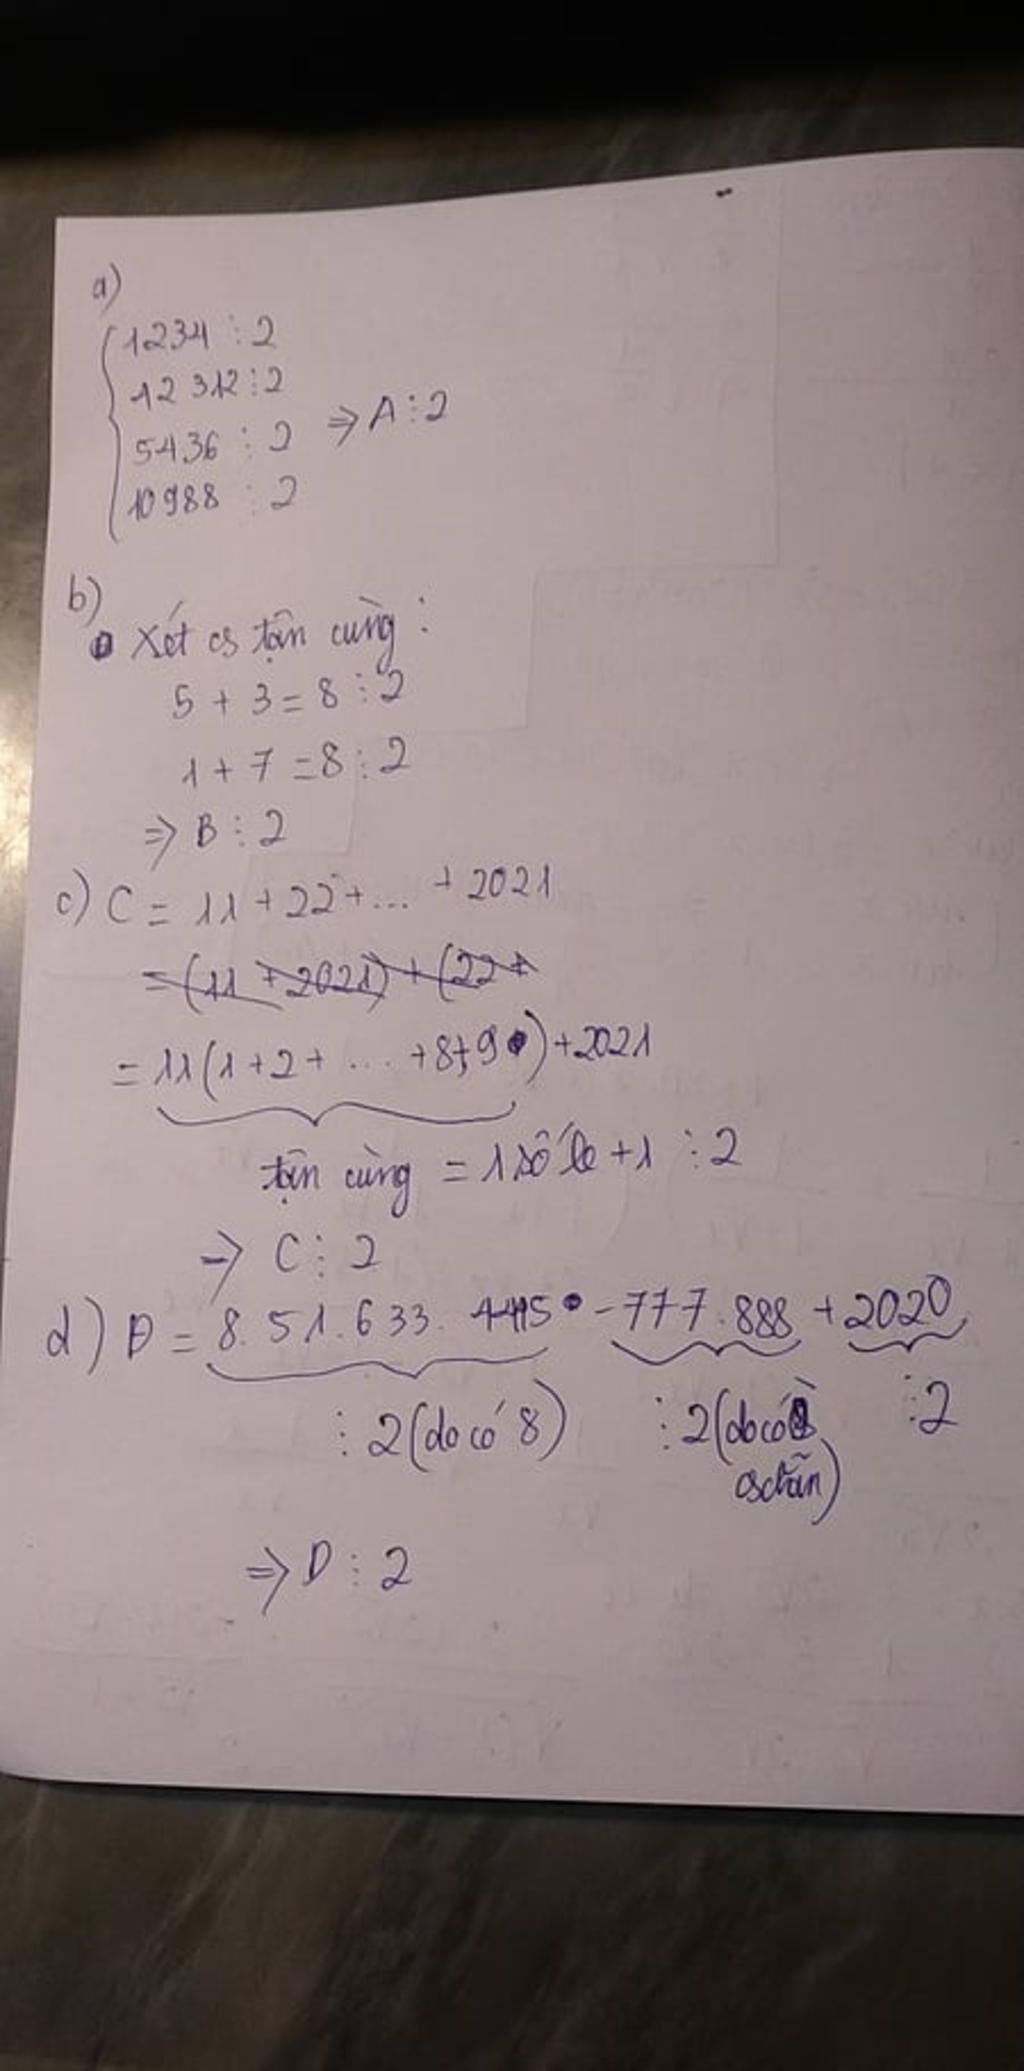 a)
1234 ⋮ 2
12 312 ⋮ 2
5436 ⋮ 2 ⇒ A ⋮ 2
10988 ⋮ 2
b)
Xét cs tận cùng :
5 + 3 = 8 ⋮ 2
1 + 7 = 8 ⋮ 2
⇒ B ⋮ 2
c) C = 11 + 22 + ... + 2021
= (11 + 2021) + (22 +
= 11(1 + 2 + ... + 8 + 9) + 2021
tận cùng = 1 số lẻ + 1 ⋮ 2
⇒ C ⋮ 2
d) D = 8.51.633. - 777.888 + 2020
⋮ 2 (do có 8) ⋮ 2 (do có ⋮ 2
cs chẵn)
⇒ D ⋮ 2